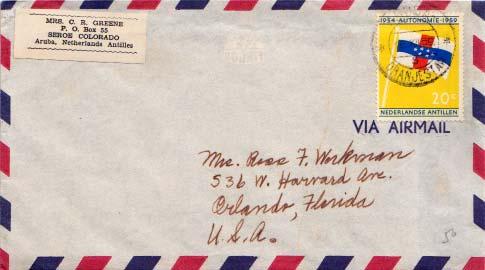 MRS. C. R. GREENE
P. O. Box 55
SEROE COLORADO
Aruba, Netherlands Antilles
1954 - AUTONOMIE - 1959
ORANJESTAD
20c
NEDERLANDSE ANTILLEN
VIA AIRMAIL
Mrs. Ross F. Workman
536 W. Harvard Ave.
Orlando, Florida
U.S.A.
50